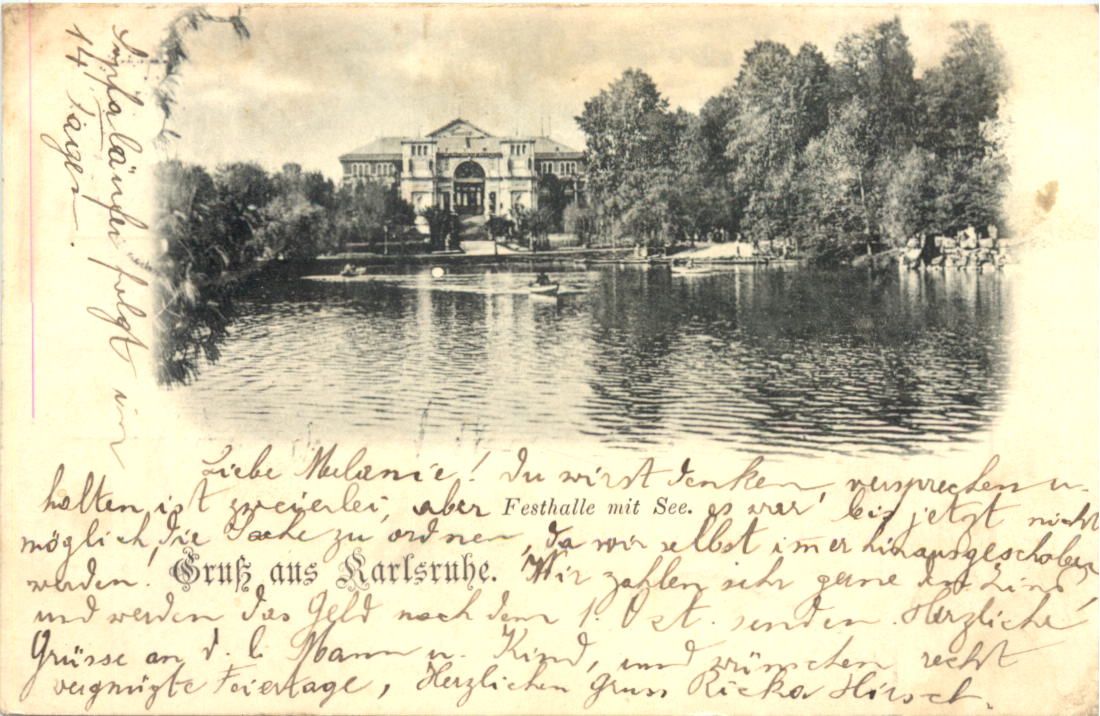 Liebe Melanie! Du wirst denken, versprechen u.
halten ist zweierlei, aber
Festhalle mit See.
es war bis jetzt nicht
möglich, die Sache zu ordnen, da wir selbst immer hinausgeschoben
werden.
Gruß aus Karlsruhe.
Wir zahlen sehr gerne den Zins,
und werden das Geld nach dem 1. Okt. senden. Herzliche
Grüsse an d. l. Mann u. Kind, und wünschen recht
vergnügte Feiertage, Herzlichen Gruss Ricka Hirsch.
folgt in
14 Tagen.